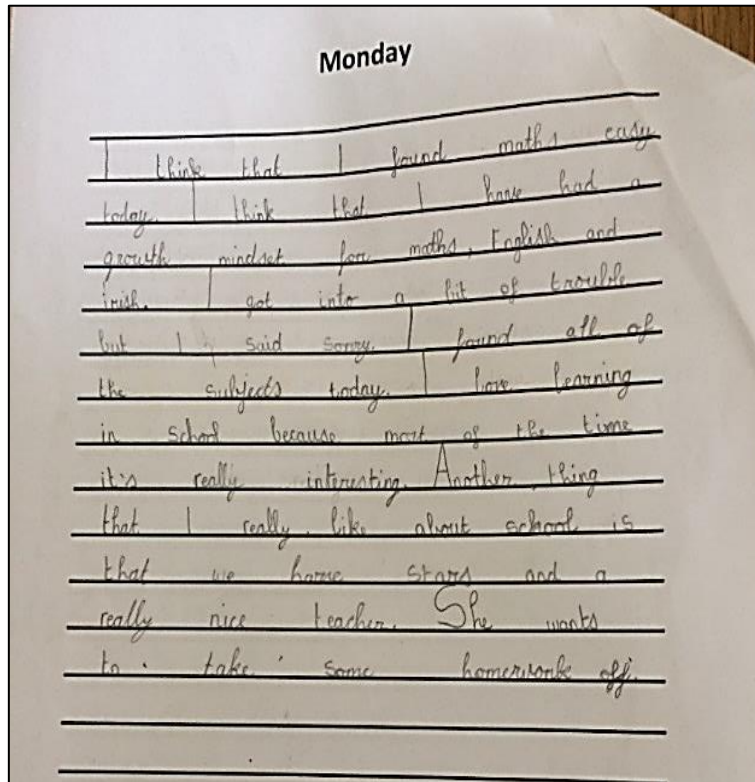 Monday
I think that I found maths easy
today. I think that I have had a
growth mindset for maths, English and
irish. I got into a bit of trouble
but I said sorry. I found all of
the subjects today. I love learning
in school because most of the time
it's really interesting. Another thing
that I really like about school is
that we have stars and a
really nice teacher. She wants
to take some homework off.